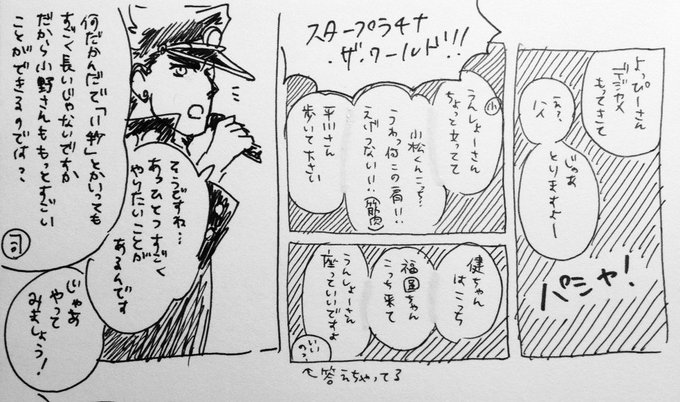 何だかんだで「11秒」とかいっても
すごく長いじゃないですか
だから小野さんももっとすごい
ことができるのでは？
そうですね…
あっひとつすごく
やりたいことが
あるんです
じゃあ
やって
みましょう！
スタープラチナ
・ザ・ワールド!!
小
うんしょーさん
ちょっと立ってて
小松くんこっち…
うわっ何この肩!!
えげつない!!
筋肉
平川さん
歩いて下さい
健ちゃん
はこっち
福圓ちゃん
こっち来て
うんしょーさん
座っていいですよ
いいの？
↑答えちゃってる
よっぴーさん
デジカメ
もってきて
えっ、
ハイ
じゃあ
とりますよー
パシャ！